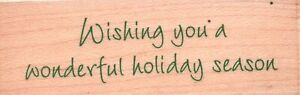 Wishing you a
wonderful holiday season